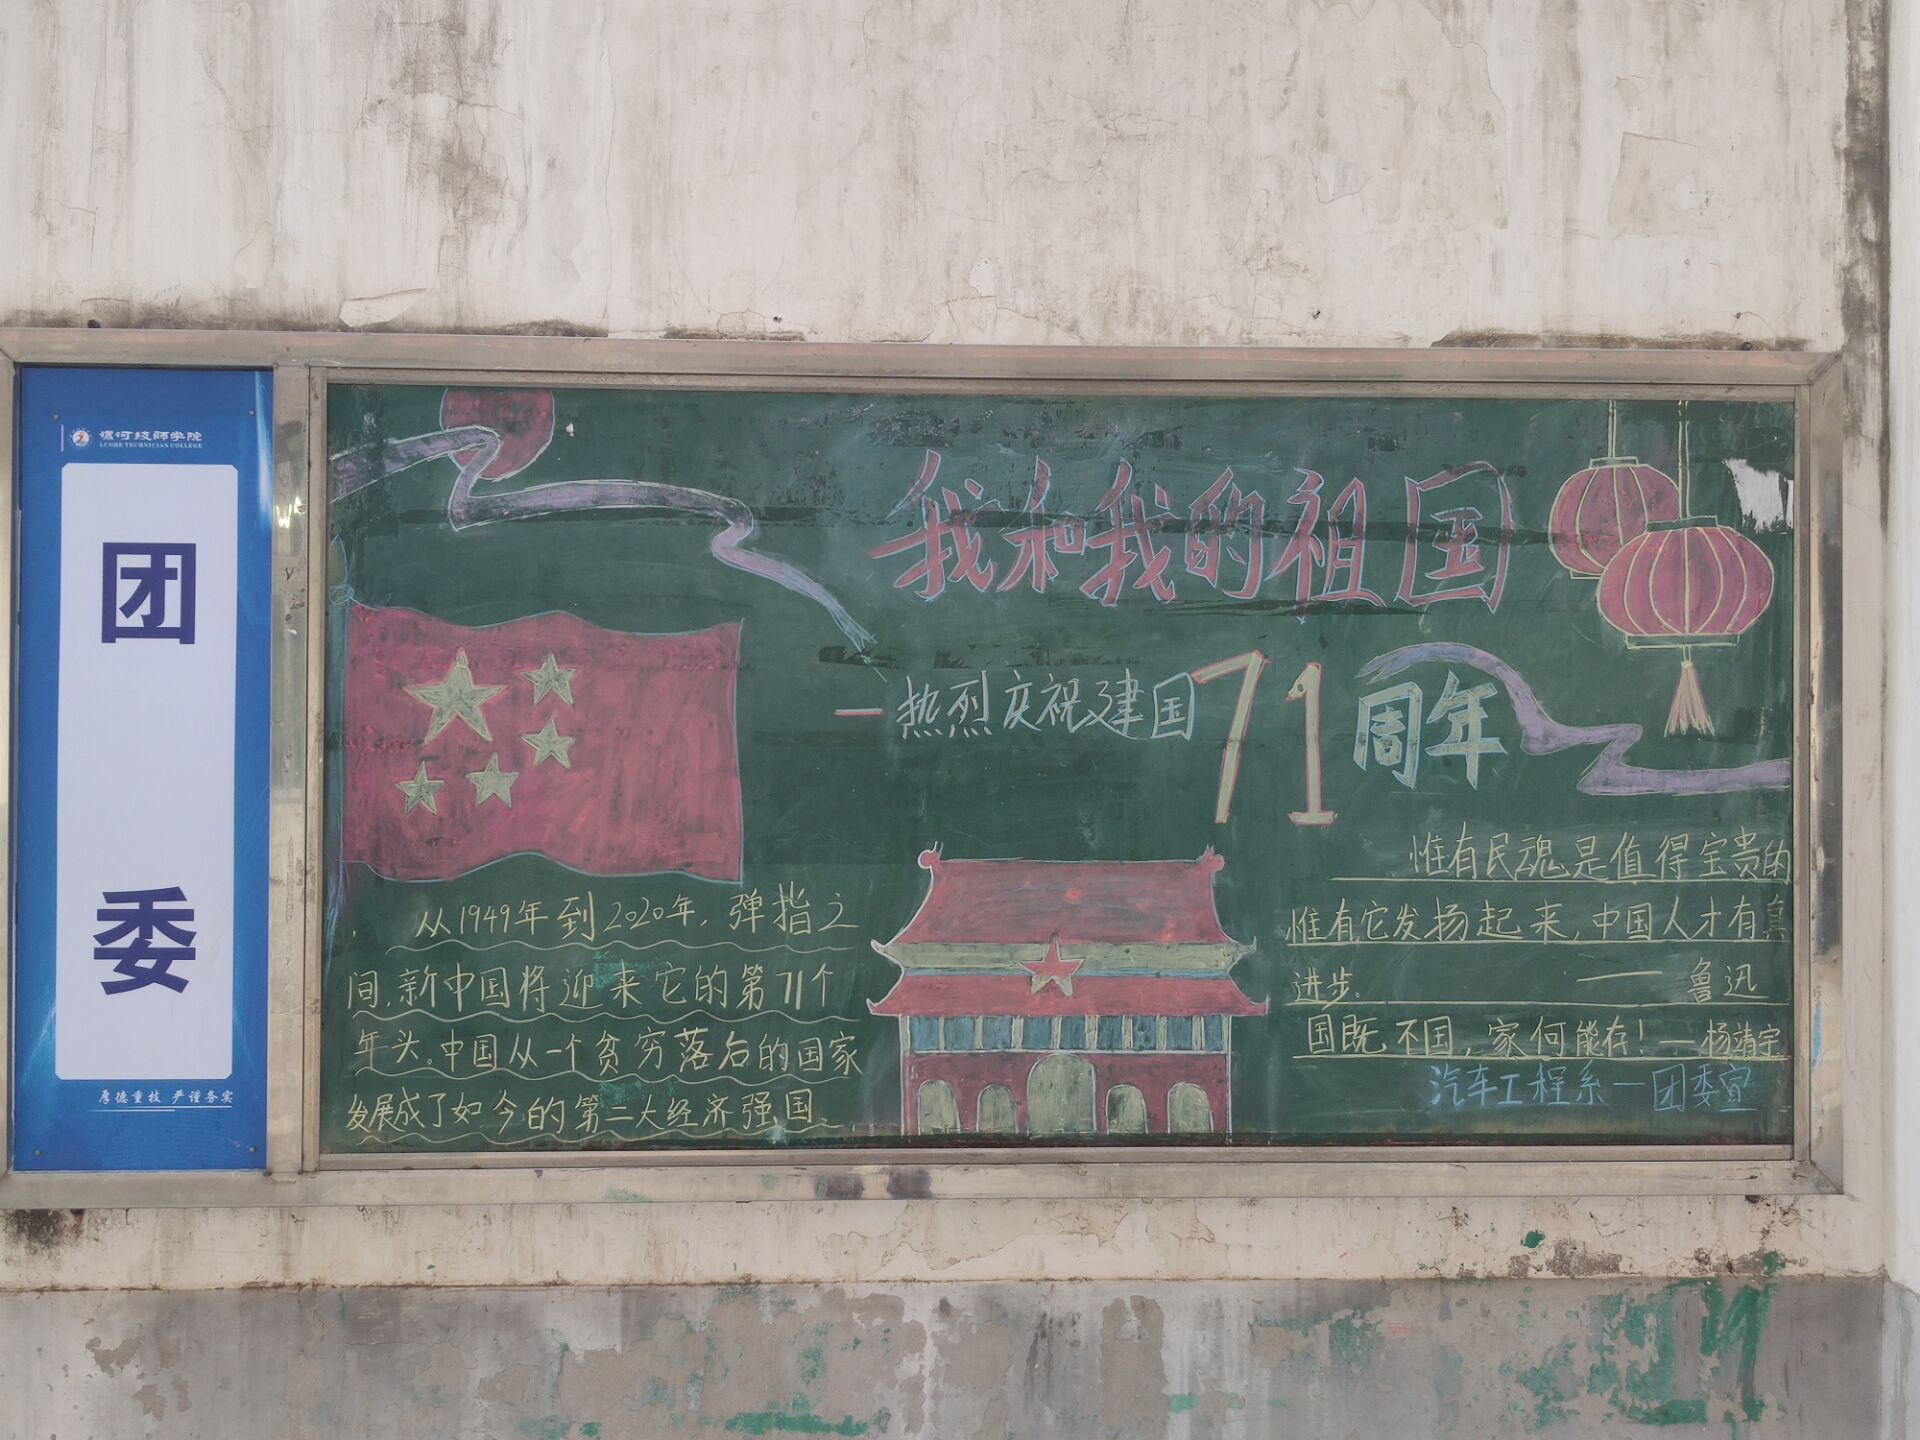 漯河技师学院
LUOHE TECHNICIAN COLLEGE
团
委
厚德重技 严谨务实
我和我的祖国
—热烈庆祝建国71周年
从1949年到2020年,弹指之
间,新中国将迎来它的第71个
年头。中国从一个贫穷落后的国家
发展成了如今的第二大经济强国。
惟有民魂是值得宝贵的
惟有它发扬起来,中国人才有真
进步。 —— 鲁迅
国既不国,家何能存!—杨靖宇
汽车工程系—团委宣